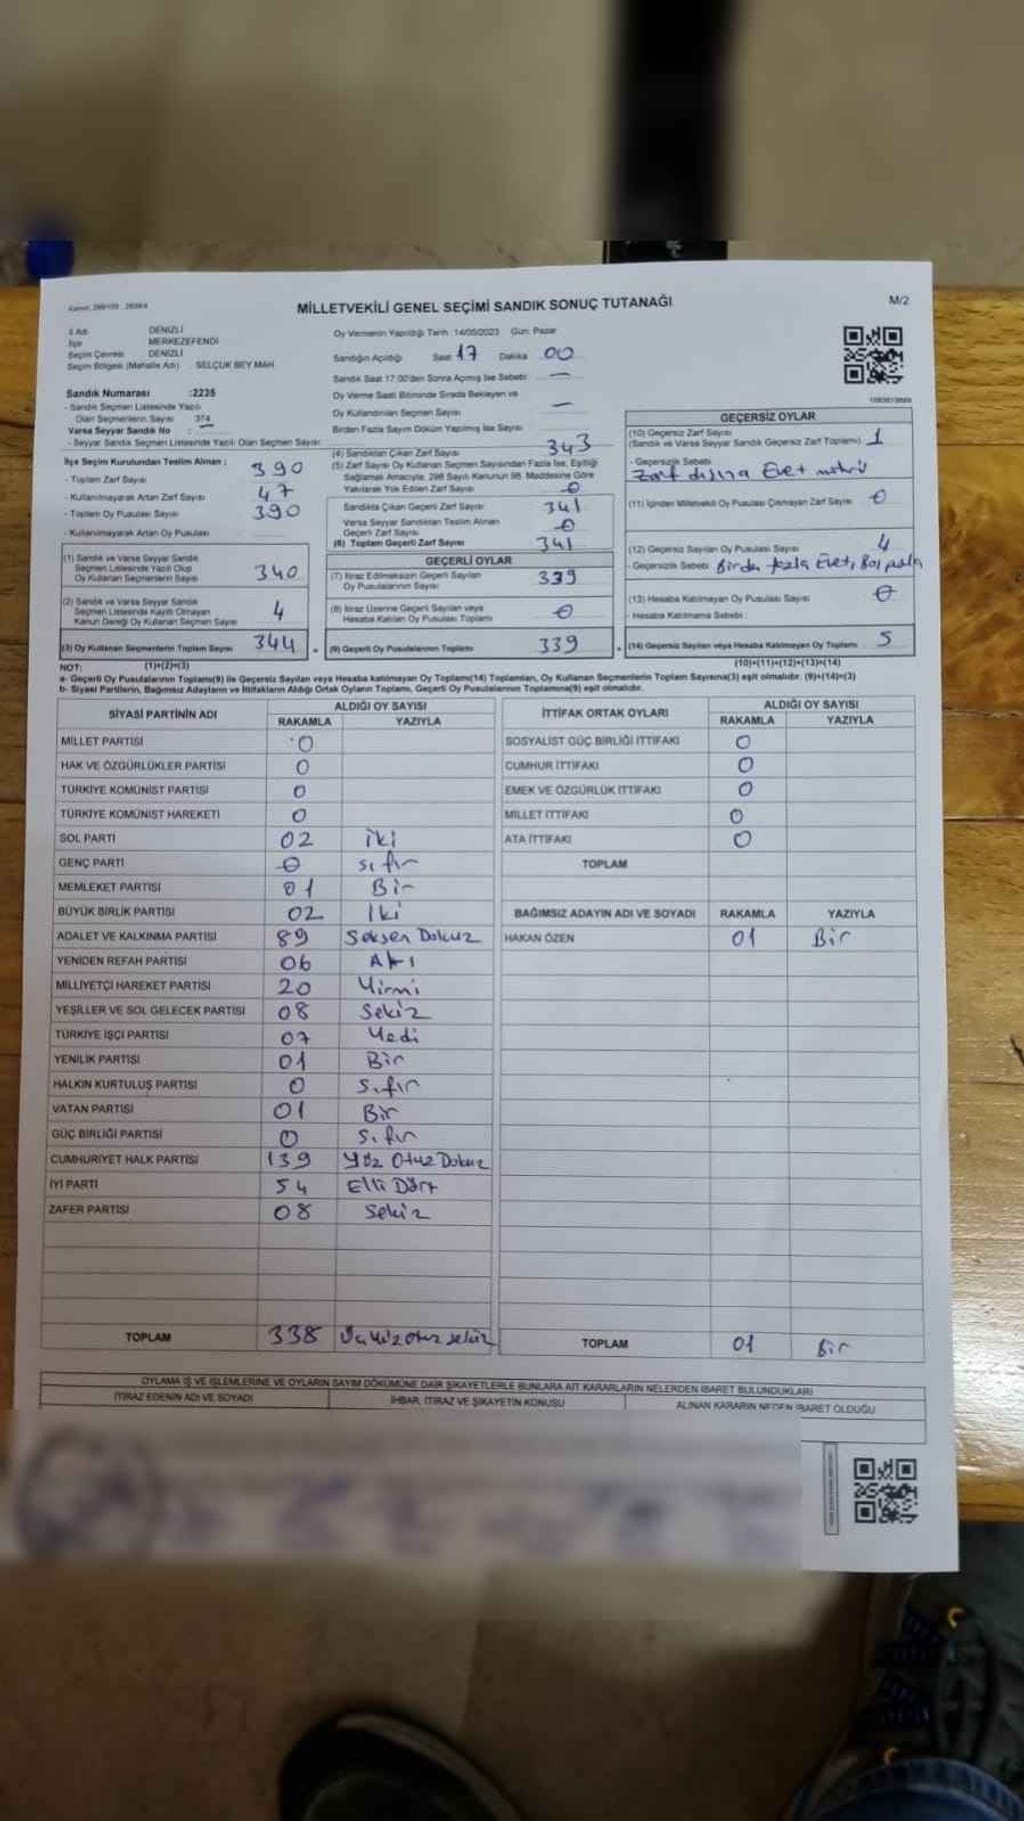 MİLLETVEKİLİ GENEL SEÇİMİ SANDIK SONUÇ TUTANAĞI
M/2
İl Adı DENİZLİ
İlçe MERKEZEFENDİ
Seçim Çevresi DENİZLİ
Seçim Bölgesi (Mahalle Adı) SELÇUK BEY MAH.
Oy Vermenin Yapıldığı Tarih :14/05/2023 Gün: Pazar
Sandığın Açıldığı Saat 17 Dakika 00
Sandık Saat 17:00'den Sonra Açılmış İse Sebebi: —
Oy Verme Saati Bitiminde Sırada Bekleyen ve
Oy Kullandırılan Seçmen Sayısı —
Birden Fazla Sayım Döküm Yapılmış İse Sayısı
Sandık Numarası :2235
- Sandık Seçmen Listesinde Yazılı
Olan Seçmenlerin Sayısı 374
Varsa Seyyar Sandık No : —
- Seyyar Sandık Seçmen Listesinde Yazılı Olan Seçmen Sayısı:
İlçe Seçim Kurulundan Teslim Alınan :
- Toplam Zarf Sayısı 390
- Kullanılmayarak Artan Zarf Sayısı 47
- Toplam Oy Pusulası Sayısı 390
- Kullanılmayarak Artan Oy Pusulası
(1) Sandık ve Varsa Seyyar Sandık
Seçmen Listesinde Yazılı Olup
Oy Kullanan Seçmenlerin Sayısı 340
(2) Sandık ve Varsa Seyyar Sandık
Seçmen Listesinde Kayıtlı Olmayan
Kanun Gereği Oy Kullanan Seçmen Sayısı 4
(3) Oy Kullanan Seçmenlerin Toplam Sayısı 344
(1)+(2)=(3)
(4) Sandıktan Çıkan Zarf Sayısı 343
(5) Zarf Sayısı Oy Kullanan Seçmen Sayısından Fazla İse, Eşitliği
Sağlamak Amacıyla, 298 Sayılı Kanunun 98. Maddesine Göre
Yakılarak Yok Edilen Zarf Sayısı 0
Sandıkta Çıkan Geçerli Zarf Sayısı 341
Varsa Seyyar Sandıktan Teslim Alınan
Geçerli Zarf Sayısı 0
(6) Toplam Geçerli Zarf Sayısı 341
GEÇERLİ OYLAR
(7) İtiraz Edilmeksizin Geçerli Sayılan
Oy Pusulalarının Sayısı 339
(8) İtiraz Üzerine Geçerli Sayılan veya
Hesaba Katılan Oy Pusulası Toplamı 0
(9) Geçerli Oy Pusulalarının Toplamı 339
GEÇERSİZ OYLAR
(10) Geçersiz Zarf Sayısı
(Sandık ve Varsa Seyyar Sandık Geçersiz Zarf Toplamı) 1
- Geçersizlik Sebebi
Zarf dışına Evet mührü
(11) İçinden Milletvekili Oy Pusulası Çıkmayan Zarf Sayısı 0
(12) Geçersiz Sayılan Oy Pusulası Sayısı 4
- Geçersizlik Sebebi Birden fazla Evet, Boş
(13) Hesaba Katılmayan Oy Pusulası Sayısı 0
- Hesaba Katılmama Sebebi :
(14) Geçersiz Sayılan veya Hesaba Katılmayan Oy Toplamı 5
(10)+(11)+(12)+(13)=(14)
NOT:
a- Geçerli Oy Pusulalarının Toplamı(9) ile Geçersiz Sayılan veya Hesaba katılmayan Oy Toplamı(14) Toplamları, Oy Kullanan Seçmenlerin Toplam Sayısına(3) eşit olmalıdır. (9)+(14)=(3)
b- Siyasi Partilerin, Bağımsız Adayların ve İttifakların Aldığı Ortak Oyların Toplamı, Geçerli Oy Pusulalarının Toplamına(9) eşit olmalıdır.
SİYASİ PARTİNİN ADI ALDIĞI OY SAYISI
RAKAMLA YAZIYLA
MİLLET PARTİSİ 0
HAK VE ÖZGÜRLÜKLER PARTİSİ 0
TÜRKİYE KOMÜNİST PARTİSİ 0
TÜRKİYE KOMÜNİST HAREKETİ 0
SOL PARTİ 02 İki
GENÇ PARTİ 0 sıfır
MEMLEKET PARTİSİ 01 Bir
BÜYÜK BİRLİK PARTİSİ 02 İki
ADALET VE KALKINMA PARTİSİ 89 Seksen Dokuz
YENİDEN REFAH PARTİSİ 06 Altı
MİLLİYETÇİ HAREKET PARTİSİ 20 Yirmi
YEŞİLLER VE SOL GELECEK PARTİSİ 08 Sekiz
TÜRKİYE İŞÇİ PARTİSİ 07 Yedi
YENİLİK PARTİSİ 01 Bir
HALKIN KURTULUŞ PARTİSİ 0 Sıfır
VATAN PARTİSİ 01 Bir
GÜÇ BİRLİĞİ PARTİSİ 0 Sıfır
CUMHURİYET HALK PARTİSİ 139 Yüz Otuz Dokuz
İYİ PARTİ 54 Elli Dört
ZAFER PARTİSİ 08 Sekiz
TOPLAM 338 Üç Yüz otuz sekiz
İTTİFAK ORTAK OYLARI ALDIĞI OY SAYISI
RAKAMLA YAZIYLA
SOSYALİST GÜÇ BİRLİĞİ İTTİFAKI 0
CUMHUR İTTİFAKI 0
EMEK VE ÖZGÜRLÜK İTTİFAKI 0
MİLLET İTTİFAKI 0
ATA İTTİFAKI 0
TOPLAM
BAĞIMSIZ ADAYIN ADI VE SOYADI RAKAMLA YAZIYLA
HAKAN ÖZEN 01 Bir
TOPLAM 01 Bir
OYLAMA İŞ VE İŞLEMLERİNE VE OYLARIN SAYIM DÖKÜMÜNE DAİR ŞİKAYETLERLE BUNLARA AİT KARARLARIN NELERDEN İBARET BULUNDUKLARI
İTİRAZ EDENİN ADI VE SOYADI İHBAR, İTİRAZ VE ŞİKAYETİN KONUSU ALINAN KARARIN NEDEN İBARET OLDUĞU